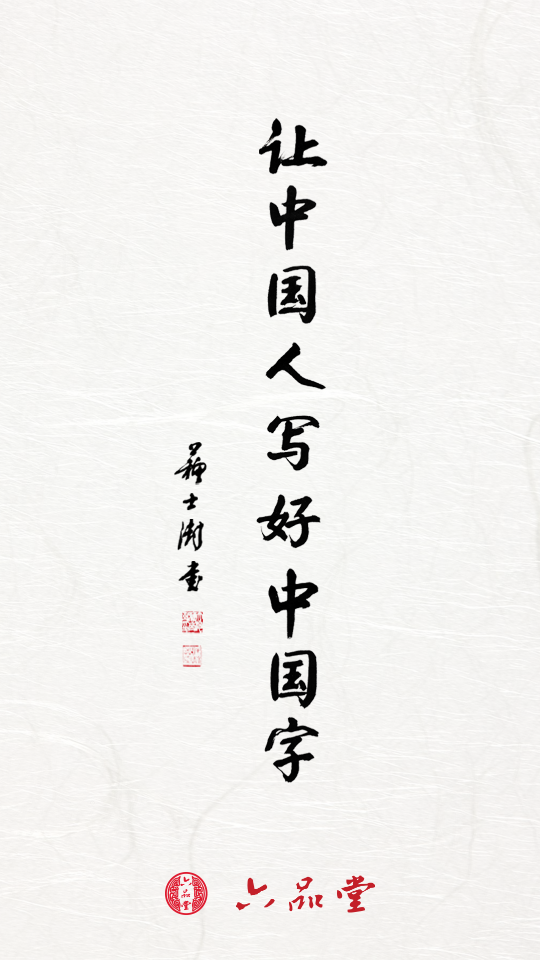 让中国人写好中国字
蘇士澍書
六品堂
六品堂